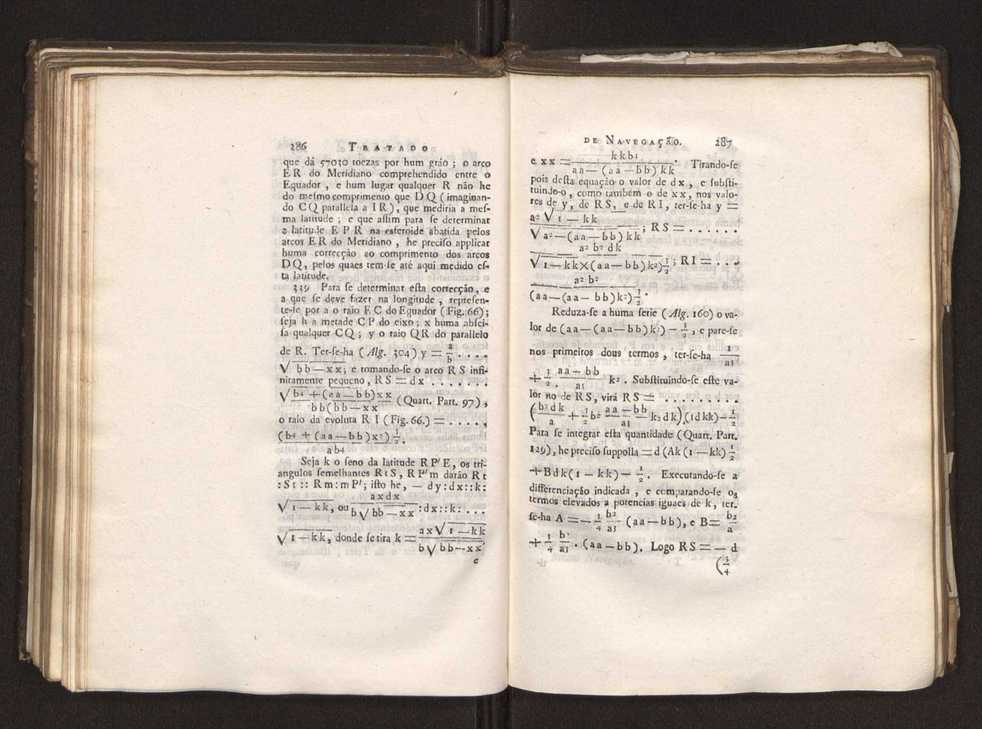 286 TRATADO
que dá 57030 toezas por hum gráo ; o arco
E R do Meridiano comprehendido entre o
Equador , e hum lugar qualquer R não he
do mesmo comprimento que D Q ( imaginan-
do C Q parallela a I R ) , que mediria a mes-
ma latitude ; e que assim para se determinar
a latitude E P R na esferoide abatida pelos
arcos E R do Meridiano , he preciso applicar
huma correcção ao comprimento dos arcos
D Q , pelos quaes tem-se até aqui medido es-
ta latitude.
339 Para se determinar esta correcção , e
a que se deve fazer na longitude , represen-
te-se por a o raio E C do Equador ( Fig. 66) ;
seja b a metade C P do eixo ; x huma absci-
sa qualquer C Q ; y o raio Q R do parallelo
de R. Ter-se-ha ( Alg. 304 ) y = a/b . . . .
√ bb — xx ; e tomando-se o arco R S infi-
nitamente pequeno , R S = dx . . . . . . .
√ b4 + (aa — bb)xx / bb(bb — xx (Quart. Part. 97) ,
o raio da evoluta R I ( Fig. 66.) = . . . . ,
(b4 + (aa — bb)x2) 3/2 / ab4 .
Seja k o seno da latitude R P' E , os tri-
angulos semelhantes R t S , R P' m darão R t
: S t :: R m : m P' ; isto he , — dy : dx :: k :
√ 1 — kk , ou axdx / b √ bb — xx : dx :: k : . . .
√ 1 — kk , donde se tira k = ax √ 1 — kk / b √ bb — xx ,
e
DE NAVEGAÇÃO. 287
e xx = kkb4 / aa — (aa — bb) kk . Tirando-se
pois desta equação o valor de dx , e substi-
tuindo-o , como tambem o de xx , nos valo-
res de y , de RS , e de RI , ter-se-ha y =
a2 √ 1 — kk / √ a2 — (aa — bb) kk ; RS = . . . . . .
a2 b2 dk / √ 1 — kk × (aa — bb) k2) 3/2 ; RI = . . . .
a2 b2 / (aa — (aa — bb) k2) 3/2 .
Reduza-se a huma serie ( Alg. 160) o va-
lor de (aa — (aa — bb) k2) — 3/2 , e pare-se
nos primeiros dous termos , ter-se-ha 1/a3
+ 3/2 . aa — bb / a5 k2 . Substituindo-se este va-
lor no de RS , virá RS = . . . . . . . . .
(b2 dk / a + 3/2 b2 aa — bb / a3 k2 dk) (1 — kk) — 1/2
Para se integrar esta quantidade (Quart. Part.
129) , he preciso suppolla = d (Ak (1 — kk) 1/2
+ Bdk (1 — kk) — 1/2 . Executando-se a
differenciação indicada , e comparando-se os
termos elevados a potencias iguaes de k , ter-
se-ha A = — 3/4 b2/a3 (aa — bb) , e B = b2/a
+ 3/4 b2/a3 . (aa — bb) . Logo RS = — d
(3/4